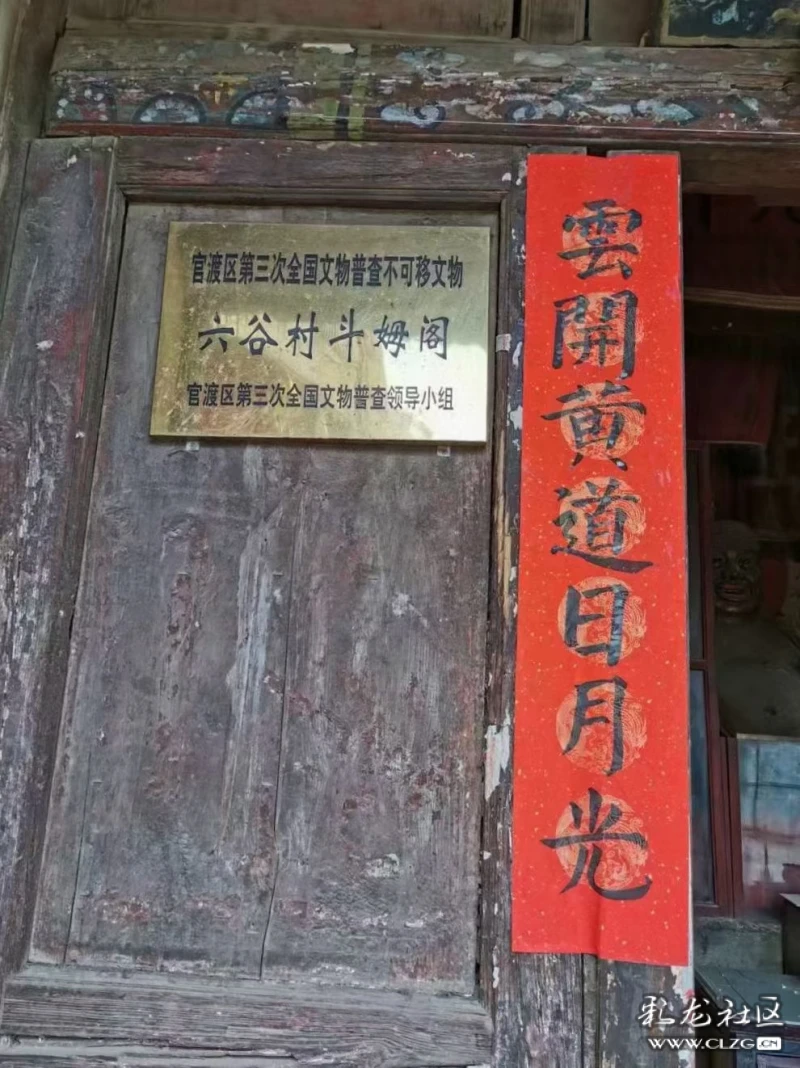 官渡区第三次全国文物普查不可移文物
六谷村斗姆阁
官渡区第三次全国文物普查领导小组
雲開黄道日月光
彩龙社区
WWW.CLZG.CN